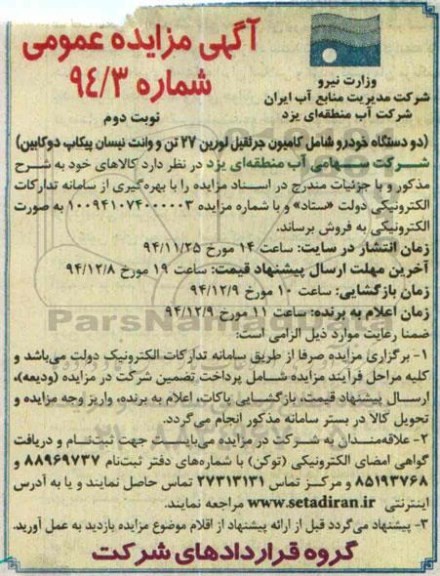 آگهی مزایده عمومی
شماره ۹۴/۳
نوبت دوم
وزارت نیرو
شرکت مدیریت منابع آب ایران
شرکت آب منطقه‌ای یزد
(دو دستگاه خودرو شامل کامیون جرثقیل لورین ۲۷ تن و وانت نیسان پیکاپ دوکابین)
شرکت سهامی آب منطقه‌ای یزد در نظر دارد کالاهای خود به شرح
مذکور و با جزئیات مندرج در اسناد مزایده را با بهره‌گیری از سامانه تدارکات
الکترونیکی دولت «ستاد» و با شماره مزایده ۱۰۰۹۴۱۰۷۴۰۰۰۰۰۳ به صورت
الکترونیکی به فروش برساند.
زمان انتشار در سایت: ساعت ۱۴ مورخ ۹۴/۱۱/۲۵
آخرین مهلت ارسال پیشنهاد قیمت: ساعت ۱۹ مورخ ۹۴/۱۲/۸
زمان بازگشایی: ساعت ۱۰ مورخ ۹۴/۱۲/۹
زمان اعلام به برنده: ساعت ۱۱ مورخ ۹۴/۱۲/۹
ضمنا رعایت موارد ذیل الزامی است:
۱- برگزاری مزایده صرفا از طریق سامانه تدارکات الکترونیک دولت می‌باشد و
کلیه مراحل فرآیند مزایده شامل پرداخت تضمین شرکت در مزایده (ودیعه)،
ارسال پیشنهاد قیمت، بازگشایی پاکات، اعلام به برنده، واریز وجه مزایده و
تحویل کالا در بستر سامانه مذکور انجام می‌گردد.
۲- علاقه‌مندان به شرکت در مزایده می‌بایست جهت ثبت‌نام و دریافت
گواهی امضای الکترونیکی (توکن) با شماره‌های دفتر ثبت‌نام ۸۸۹۶۹۷۳۷ و
۸۵۱۹۳۷۶۸ و مرکز تماس ۲۷۳۱۳۱۳۱ تماس حاصل نمایند و یا به آدرس
اینترنتی www.setadiran.ir مراجعه نمایند.
۳- پیشنهاد می‌گردد قبل از ارائه پیشنهاد از اقلام موضوع مزایده بازدید به عمل آورید.
گروه قراردادهای شرکت